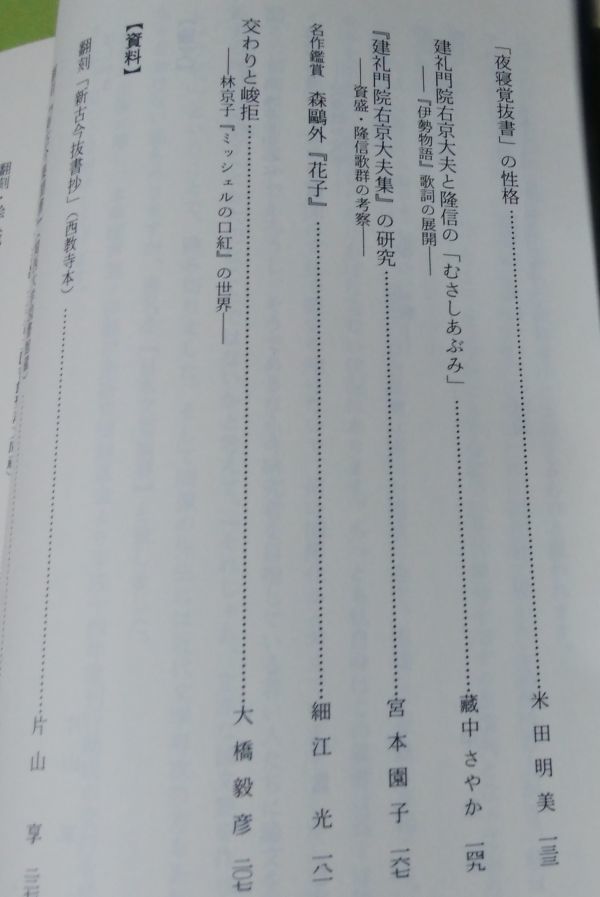 「夜寝覚抜書」の性格……米田明美 一三三
建礼門院右京大夫と隆信の「むさしあぶみ」……藏中さやか 一四九
――『伊勢物語』歌詞の展開――
『建礼門院右京大夫集』の研究……宮本園子 一六七
――資盛・隆信歌群の考察――
名作鑑賞 森鷗外『花子』……細江光 一八一
交わりと峻拒……大橋毅彦 二〇七
――林京子『ミッシェルの口紅』の世界――
【資料】
翻刻『新古今抜書抄』（西教寺本）……片山享 二二七
翻刻